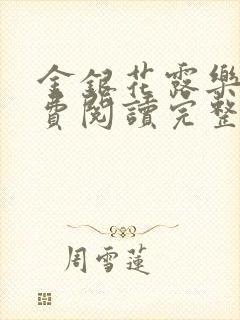 金銀花露樂
費閱讀完整
周雪蓮